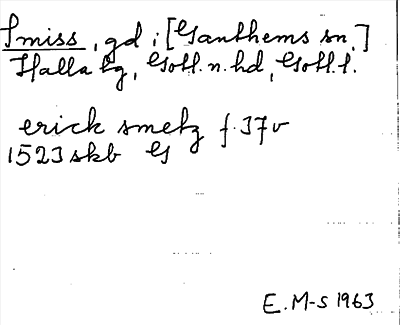 Smiss, gd i [Ganthems sn.]
Halla tg, Gotl. n. hd, Gotl. l.
erick smetz f. 37v
1523 skb G
E. M-s 1963